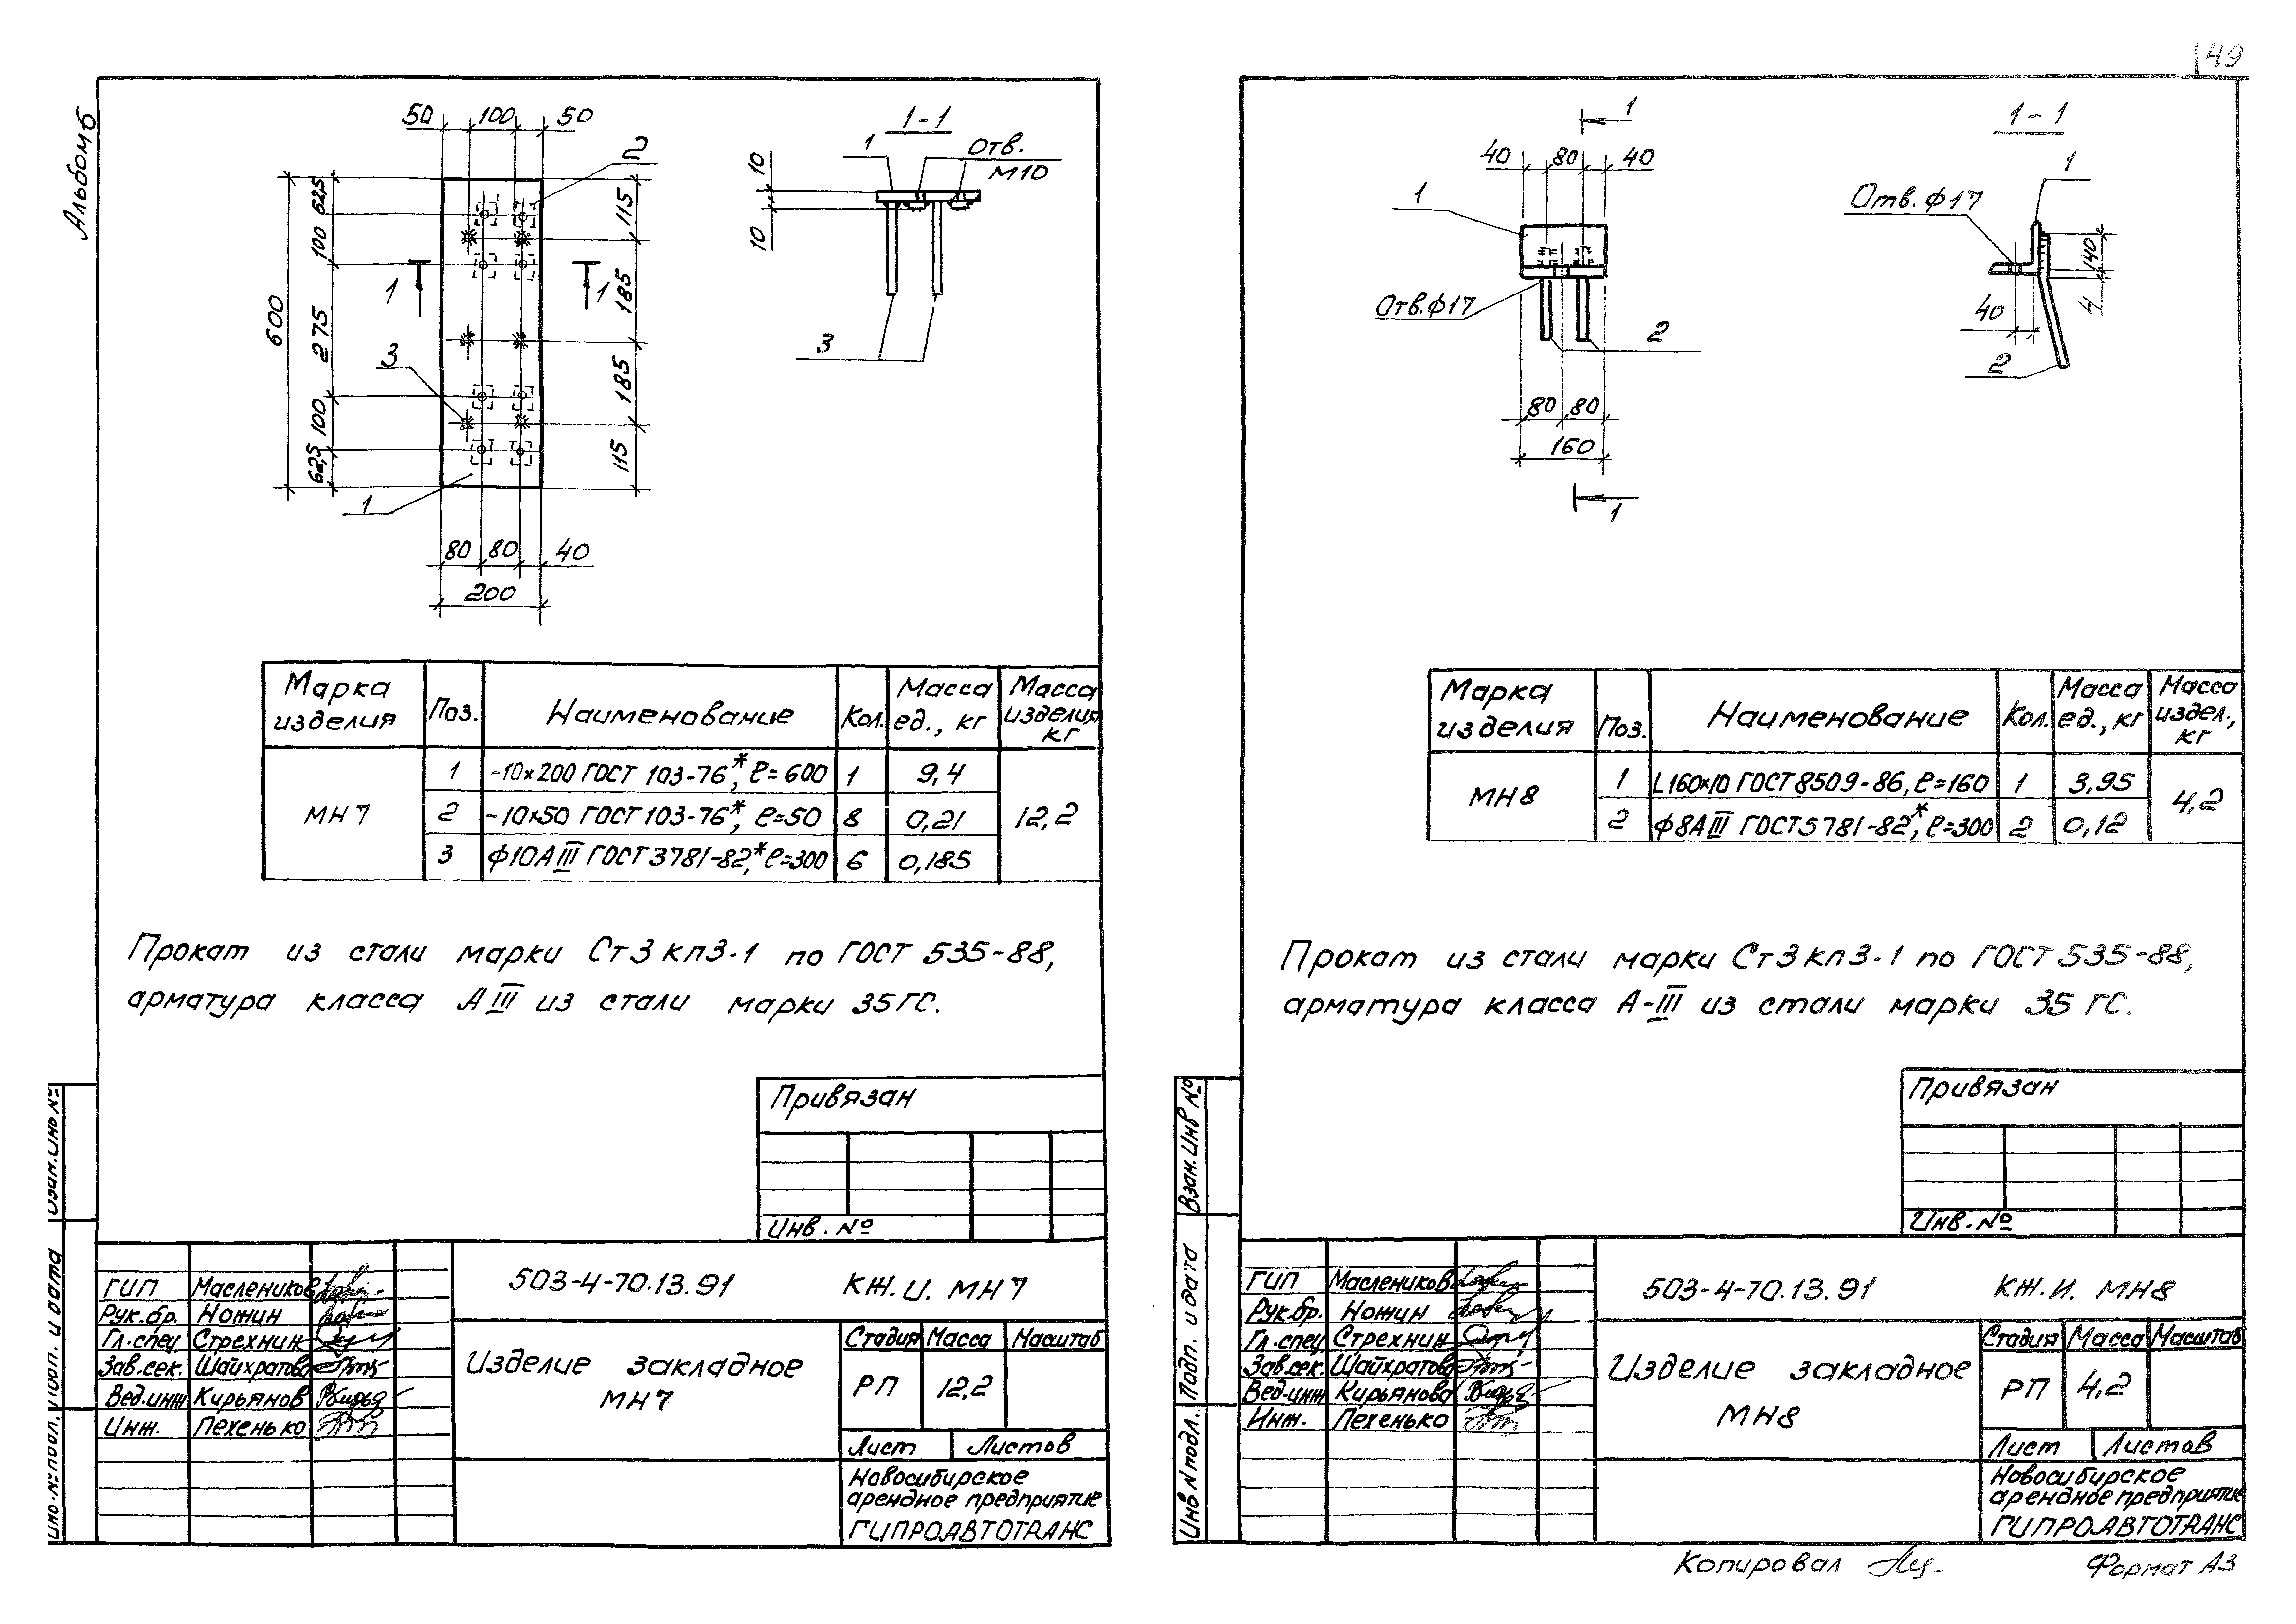 49
Альбом 6
50 100 50
2
62,5
100
275
100
62,5
600
115
185
185
115
1 1
3
1
80 80 40
200
1-1
1
Отв.
М10
10
10
3
Марка изделия | Поз. | Наименование | Кол. | Масса ед., кг | Масса изделия кг
МН7 | 1 | -10х200 ГОСТ 103-76*, ℓ=600 | 1 | 9,4 | 12,2
2 | -10х50 ГОСТ 103-76*, ℓ=50 | 8 | 0,21
3 | ф10АIII ГОСТ 3781-82*, ℓ=300 | 6 | 0,185
Прокат из стали марки Ст3кп3-1 по ГОСТ 535-88,
арматура класса АIII из стали марки 35ГС.
Привязан
Инв. №
Взам. инв №
Подп. и дата
Инв. № подл.
ГИП Маслеников
Рук.бр. Ножин
Гл.спец Стрехнин
Зав.сек. Шайхратова
Вед.инж Кирьянов
Инж. Пехенько
503-4-70.13.91 КЖ.И. МН7
Изделие закладное
МН7
Стадия Масса Масштаб
РП 12,2
Лист Листов
Новосибирское
арендное предприятие
ГИПРОАВТОТРАНС
1
40 80 40
1
Отв.ф17
2
80 80
160
1
1-1
1
Отв. ф17
140
4
40
2
Марка изделия | Поз. | Наименование | Кол. | Масса ед., кг | Масса издел., кг
МН8 | 1 | L160х10 ГОСТ 8509-86, ℓ=160 | 1 | 3,95 | 4,2
2 | ф8АIII ГОСТ 5781-82*, ℓ=300 | 2 | 0,12
Прокат из стали марки Ст3кп3-1 по ГОСТ 535-88,
арматура класса А-III из стали марки 35ГС.
Привязан
Инв. №
Взам. инв №
Подп. и дата
Инв N подл.
ГИП Маслеников
Рук.бр. Ножин
Гл.спец Стрехнин
Зав.сек. Шайхратова
Вед.инж Кирьянова
Инж. Пехенько
503-4-70.13.91 КЖ.И. МН8
Изделие закладное
МН8
Стадия Масса Масштаб
РП 4,2
Лист Листов
Новосибирское
арендное предприятие
ГИПРОАВТОТРАНС
Копировал
Формат А3